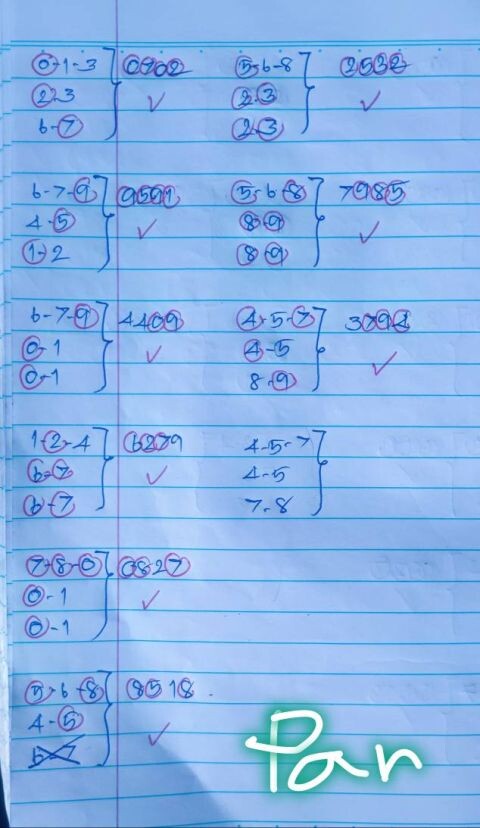 0-1-3 0702
2-3
6-7
6-7-9 9591
4-5
1-2
6-7-9 4409
0-1
0-1
1-2-4 6279
6-7
6-7
7-8-0 0827
0-1
0-1
5-6-8 8518
4-5
6-7
5-6-8 2532
2-3
2-3
5-6-8 7985
8-9
8-9
4-5-7 3794
4-5
8-9
4-5-7
4-5
7-8
Pan